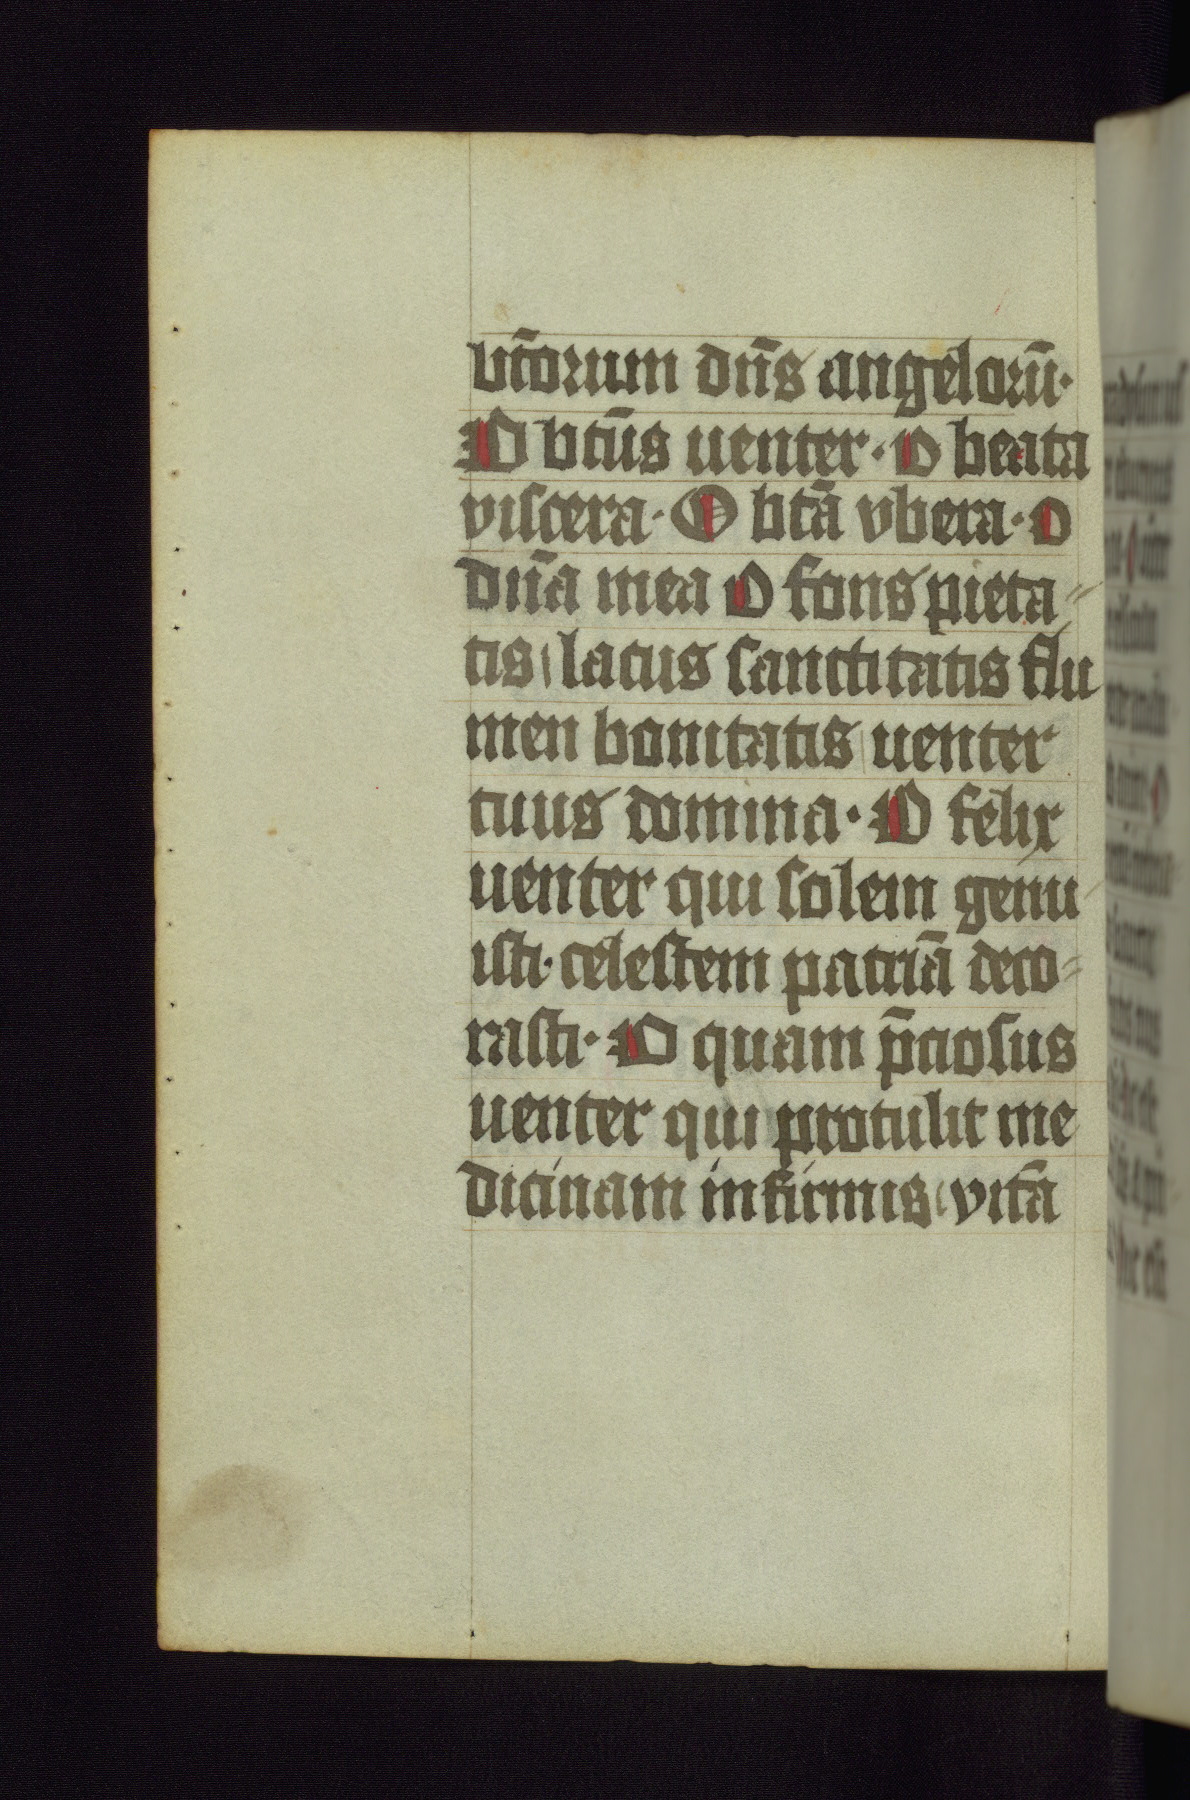 vt̄orum dn̄s angelorū·
O btūs uenter· O beata
viscera· O btā vbera· O
dn̄a mea O fons pieta⸗
tis lacus sanctitatis flu
men bonitatis uenter
tuus domina· O felix
uenter qui solem genu
isti· celestem patriā deco⸗
rasti· O quam p̄ciosus
uenter qui protulit me
dicinam infirmis vitā